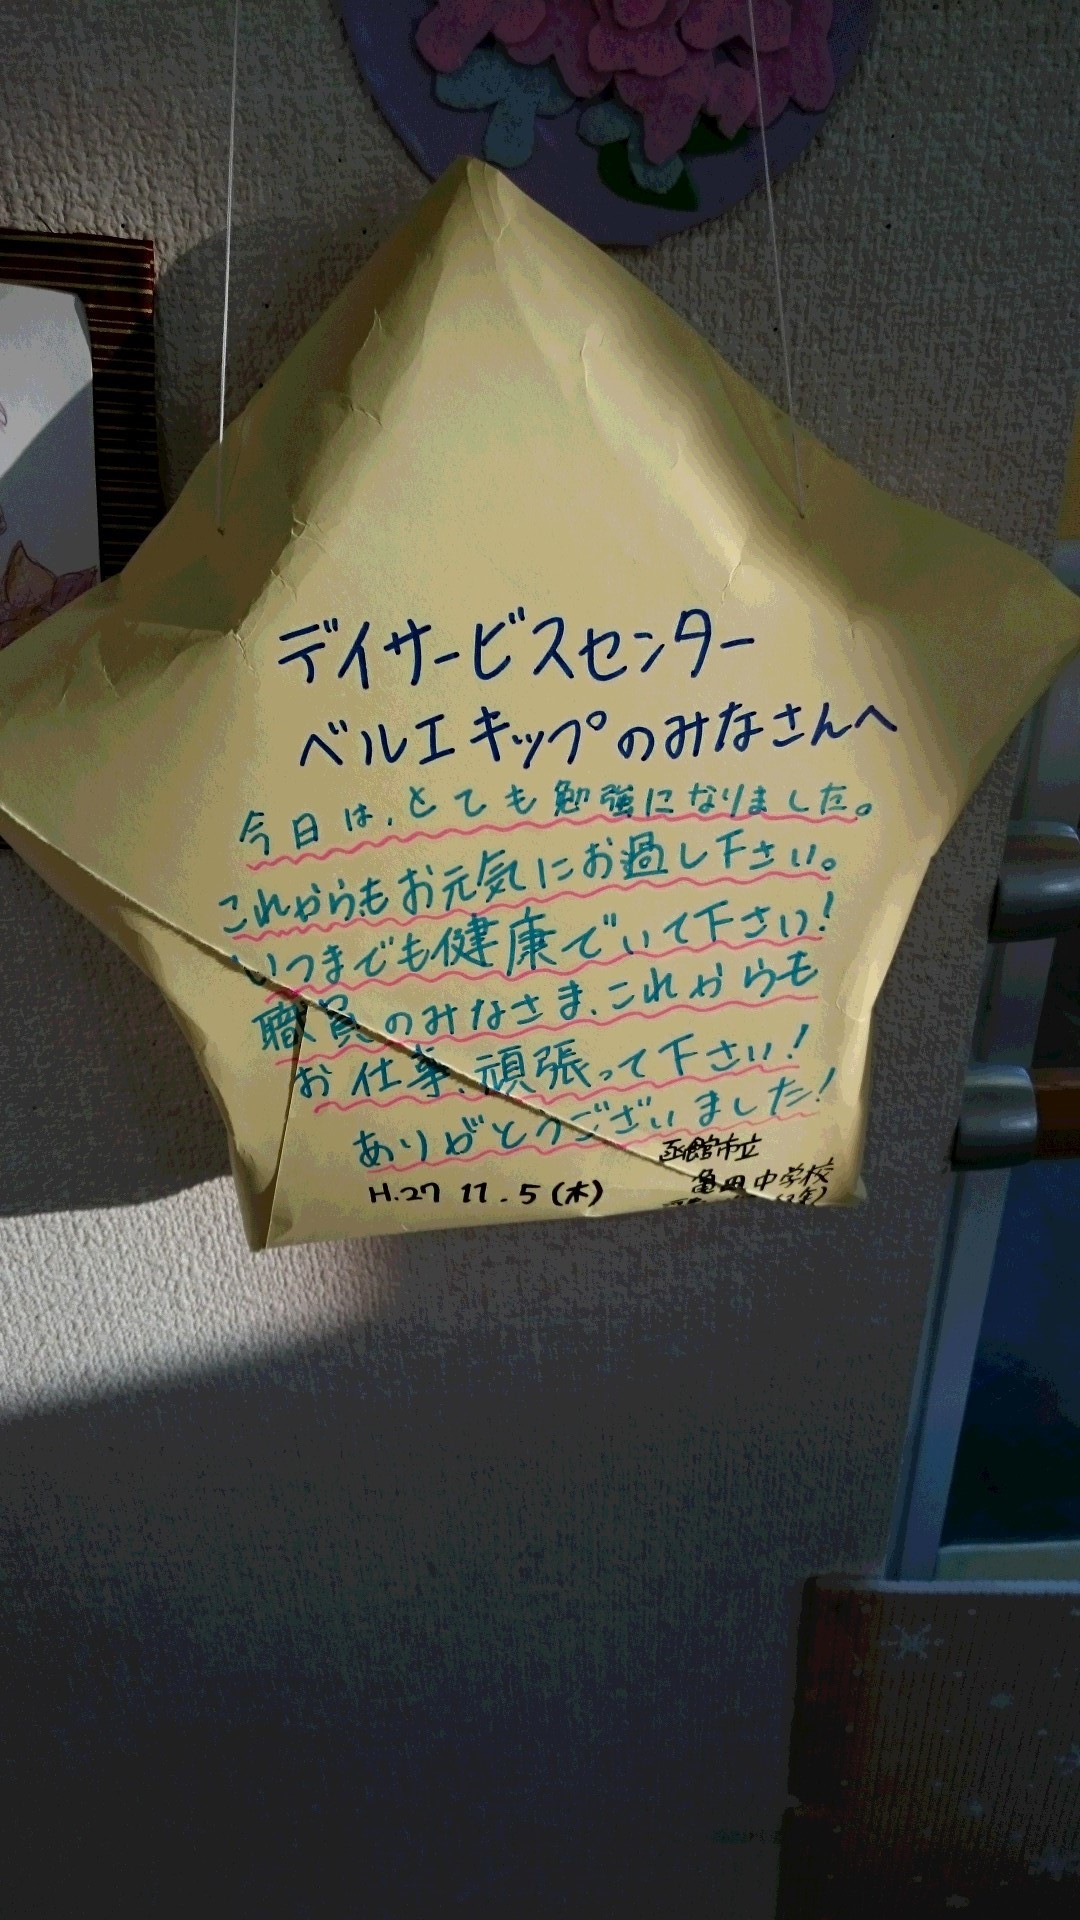 デイサービスセンター
ベルエキップのみなさんへ
今日は、とても勉強になりました。
これからもお元気にお過し下さい。
いつまでも健康でいて下さい!
職員のみなさま、これからも
お仕事、頑張って下さい!
ありがとうございました!
函館市立
亀田中学校
H.27 11.5(木)